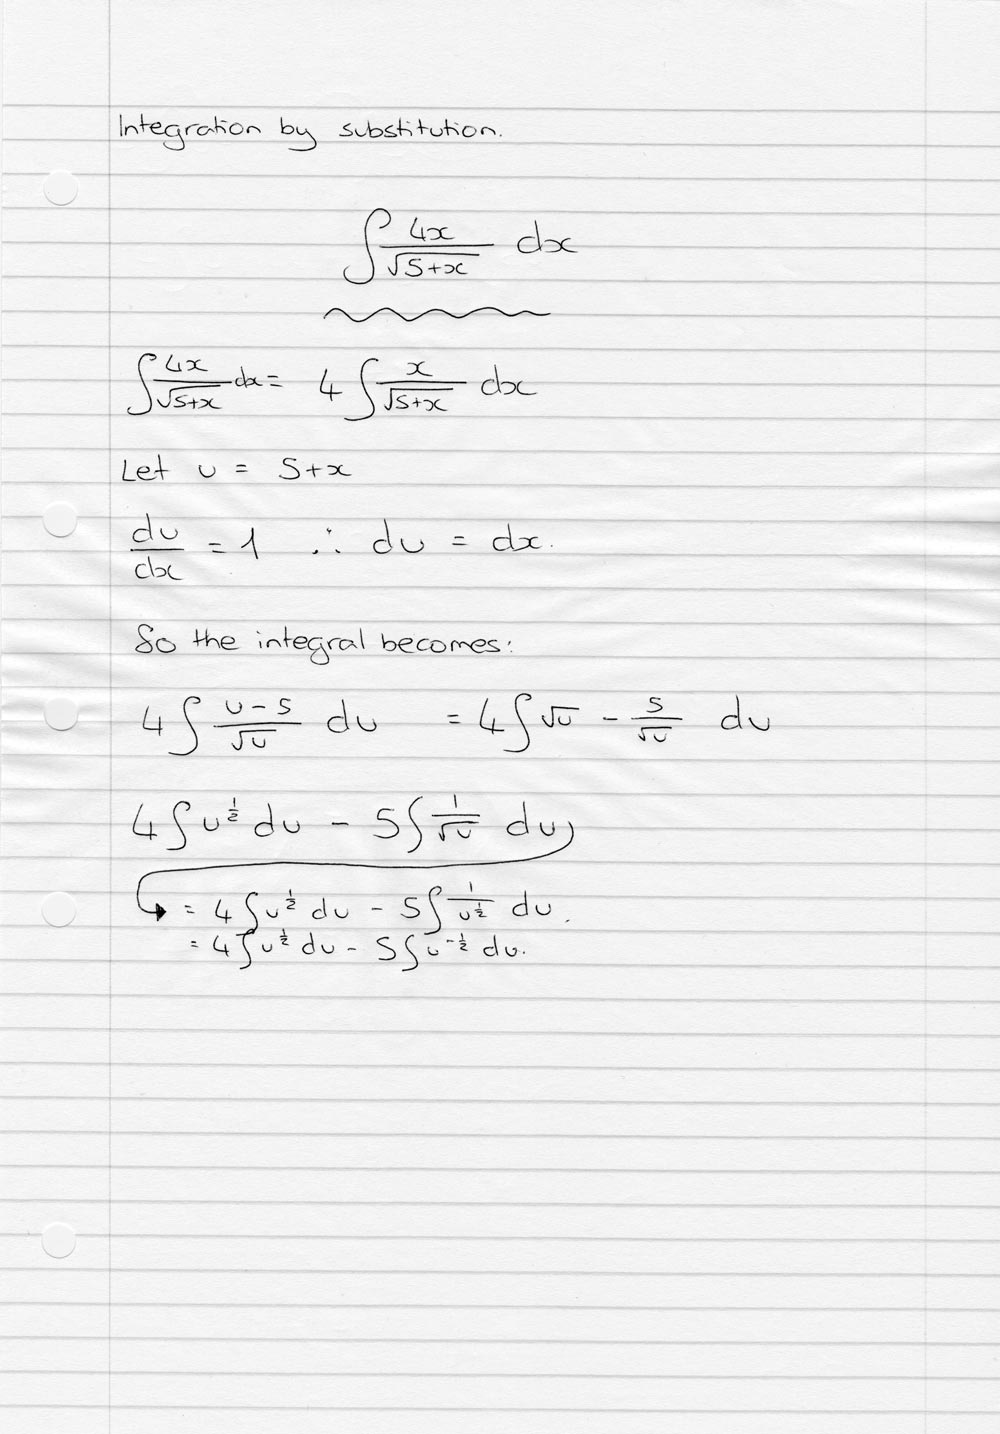 Integration by substitution.
∫ 4x/√5+x dx
∫ 4x/√5+x dx = 4 ∫ x/√5+x dx
Let u = 5+x
du/dx = 1 ∴ du = dx.
So the integral becomes:
4 ∫ u-5/√u du = 4 ∫ √u - 5/√u du
4 ∫ u^½ du - 5 ∫ 1/√u du
= 4 ∫ u^½ du - 5 ∫ 1/u^½ du.
= 4 ∫ u^½ du - 5 ∫ u^-½ du.